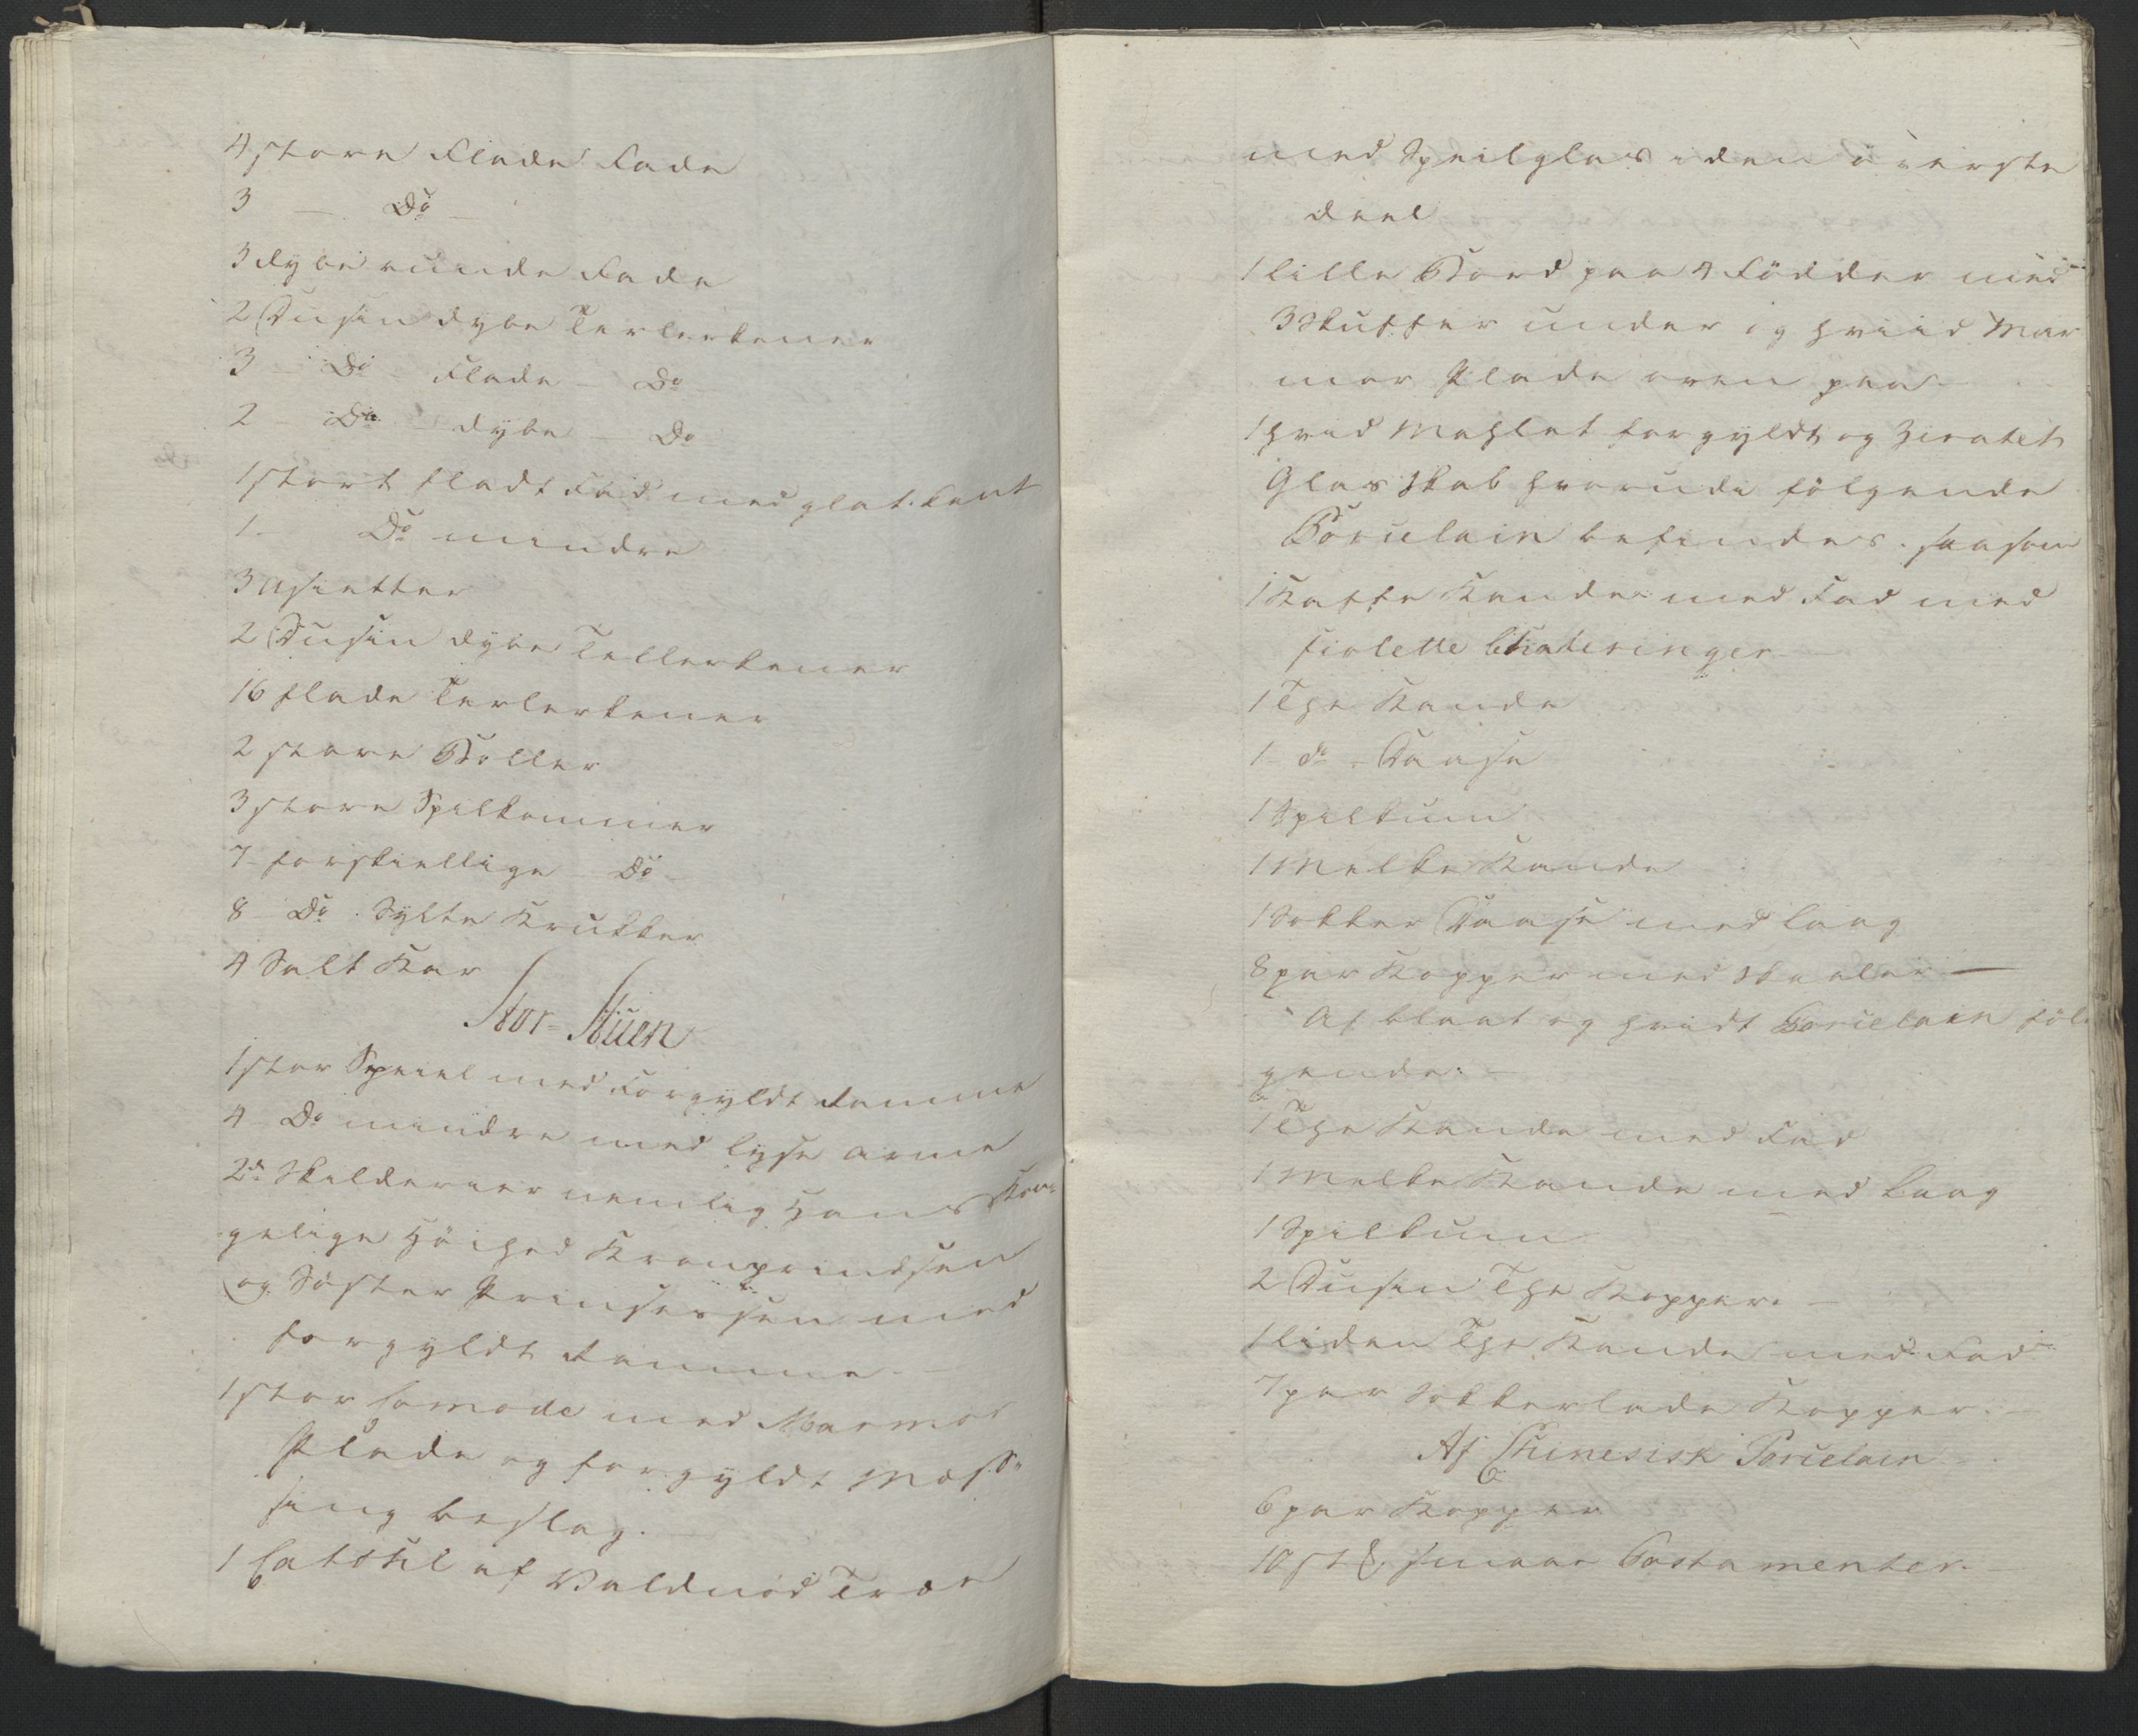 4 store Flade Fade
3 — Do —
3 dybe runde Fade
2 Dusin dybe Terlerkener
3 — Do Flade — Do
2 — Do dÿbe — Do
1 stort fladt Fad med glat Kant
1 — Do mindre
3 Asietter
2 Dusin dÿbe Tellerkener
16 flade Terlerkener
2 store Boller
3 store Spilkommer
7 forskiellige Do —
8 — Do Sylte Krukker
4 Salt Kar
Stor=Stuen
1 stor Speiel med Forgyldt Ramme
4 Do mindre med lyse Arme
2de Skilderier nemlig Hans Kon=
gelige Höihed Kronprindsen
og Søster Prinsessen med
forgyldt Ramme —
1 stor Comode med Marmor
Plade og forgyldt Mæss=
sing beslag. —
1 Catohl af Valdnød Træe
med Speilglas i den överste
deel
1 lille Bord paa 4 Födder med
3 Skuffer under og hviid Mar
mor Plade oven paa —
1 hvid Mahlet forgyldt og Ziratet
Glas Skab hvorudi fölgende
Porcelain befindes. saasom
1 Kaffe Kande med Fad med
fiolette Chateringer —
1 The Kande
1 do Daase
1 Spilkum
1 Melke Kande
1 Sokker Daase med laag
8 par Kopper med Skaaler —
Af blaat og hvidt Porcelain föl
gende: —
1 The Kande med Fad
1 Melke Kande med Laag
1 Spilkum
2 Dusin The Kopper. —
1 liden The Kande med Fad
7 par Sokkerlade Kopper. —
Af Chinesisk Porcelain
6 par Kopper
10 stk. smaae Postamenter. —